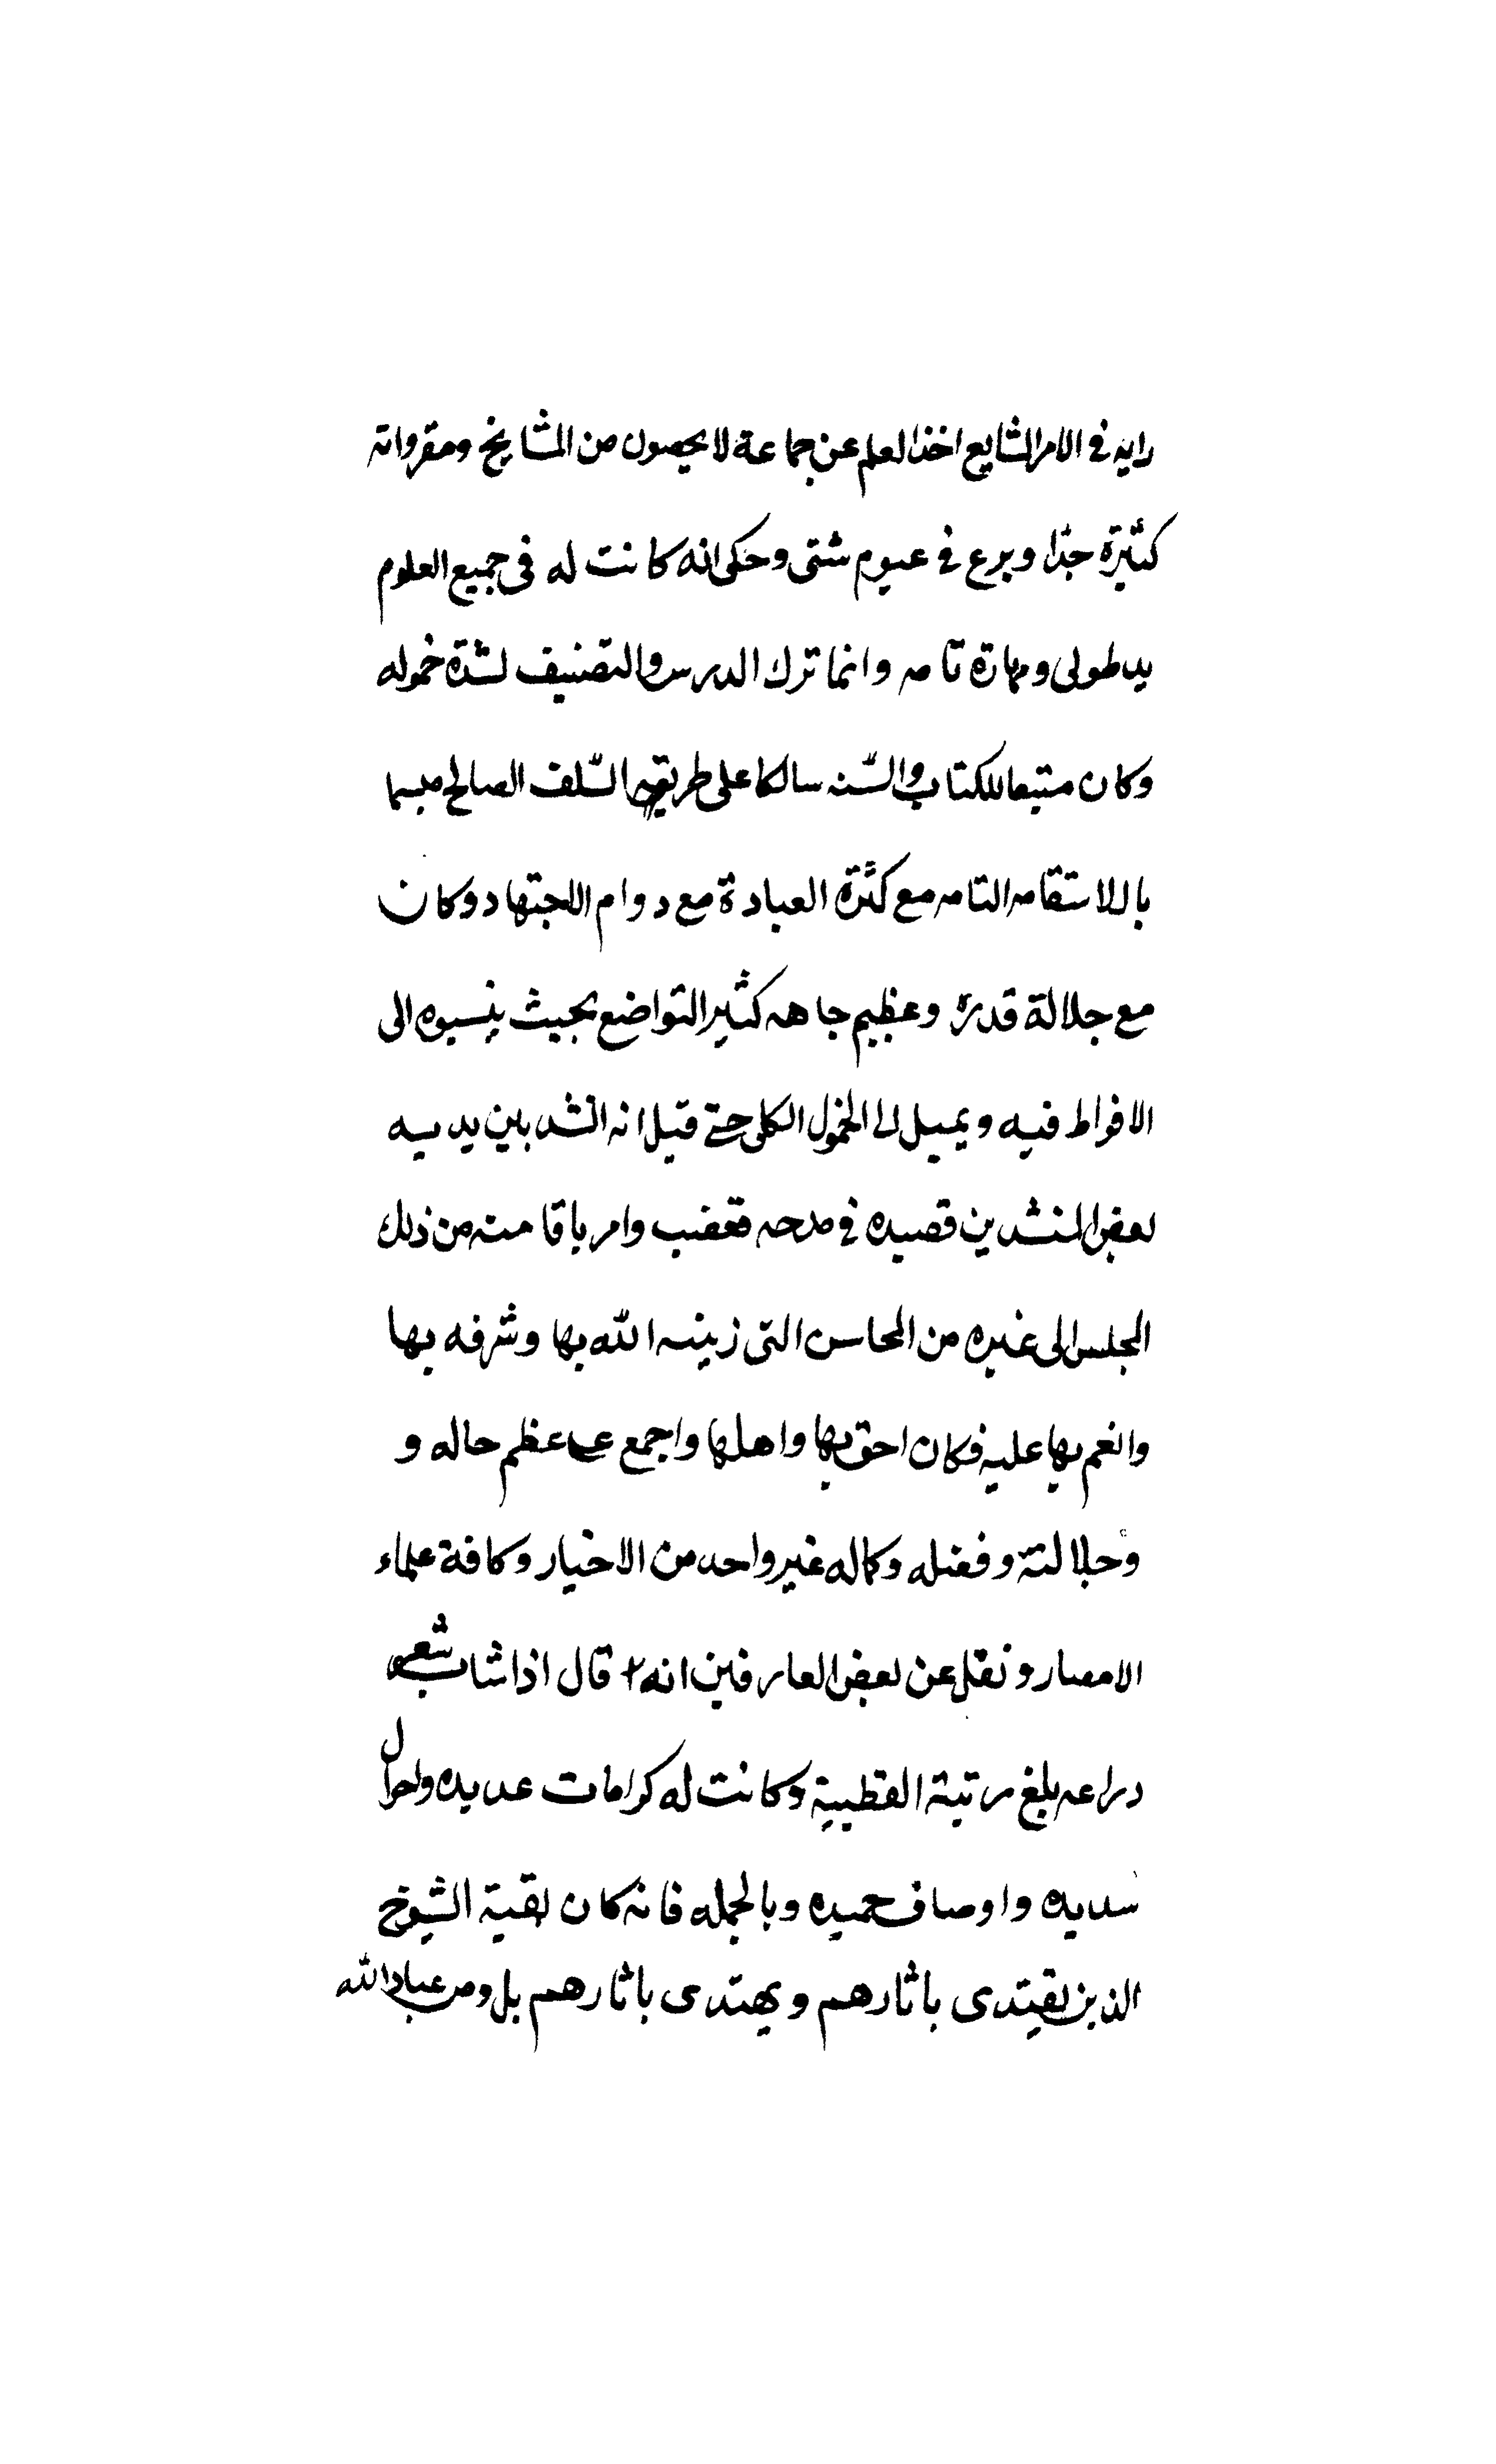 رايه في الامر الشايع اخذ العلم عن جماعة لا يحصون من المشايخ ومقرواته
كثيرة جدا وبرع في عيوم شتى وحكى انه كانت له في جميع العلوم
يد طولى ومهارة تامه وانما ترك الدرس والتصنيف لشدة خموله
وكان متبعا للكتاب والسّنه سالكا على طريقه السّلف الصالح متسما
باللاستقامه التامه مع كثرة العبادة مع دوام الاجتهاد وكان
مع جلالة قدره وعظيم جاهه كثير التواضع بحيث ينسبوه الى
الافراط فيه ويميل الى الخمول الكلى حتى قيل انه انشد بين يديه
بعض المنشدين قصيده في مدحه فغضب وامر باقامته من ذلك
المجلس الى غيره من المحاسن التى زينه الله بها وشرفه بها
وانعم بها عليه فكان احق بها واهلها واجمع على عظم حاله و
وجلالته وفضله وكماله غير واحد من الاخيار وكافة علماء
الامصار ونقل عن بعض العارفين انه قال اذا شاب شعر
دراعه بلغ مرتبة القطبية وكانت له كرامات عديده واحوال
سديده واوصاف حميده وبالجمله فانه كان بقية الشيوخ
الذين يقتدى باثارهم ويهتدى باثارهم بل ومن عباد الله